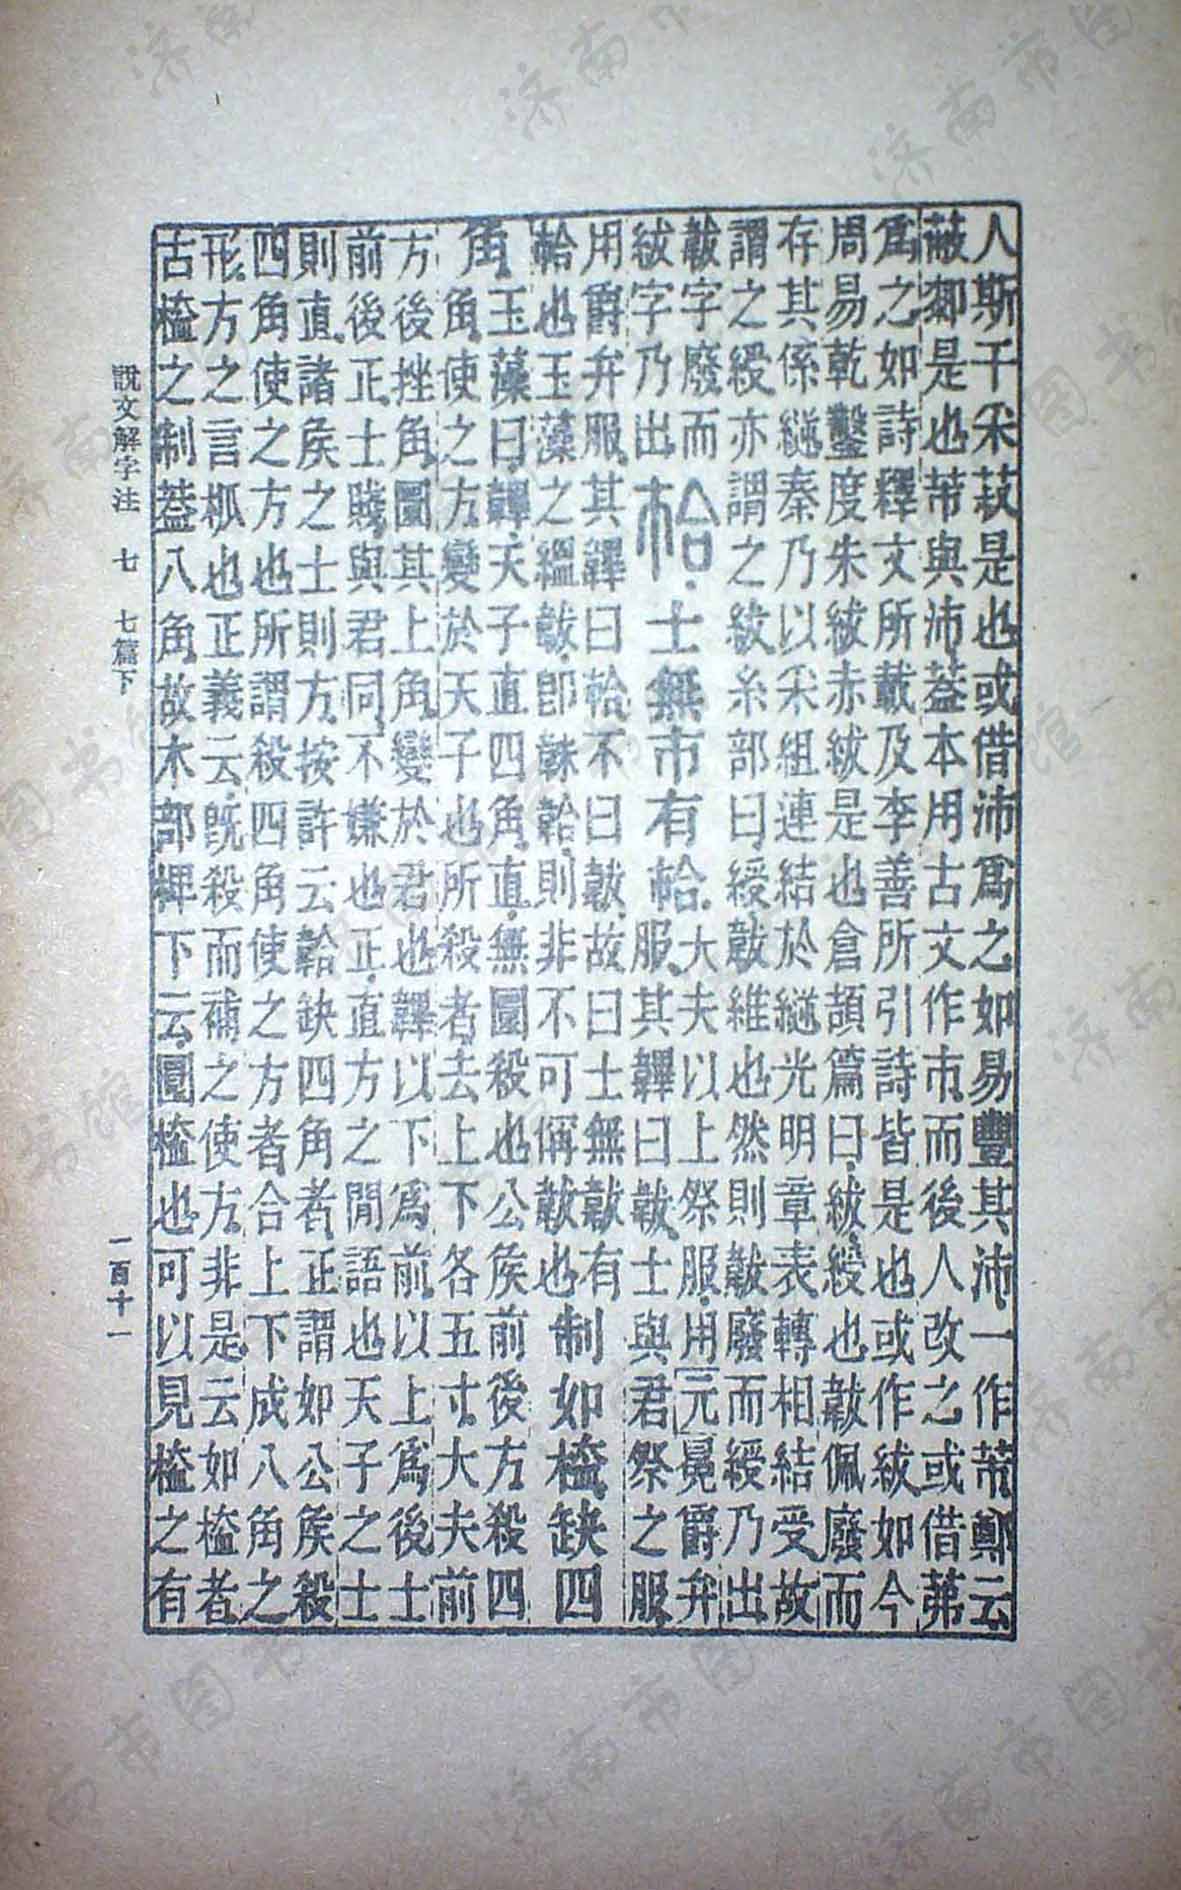 人斯干采菽是也或借沛爲之如易豐其沛一作芾鄭云
蔽䣛是也芾與沛葢本用古文作巿而後人改之或借茀
爲之如詩釋文所載及李善所引詩皆是也或作紱如今
周易乾鑿度朱紱赤紱是也倉頡篇曰紱綬也韍佩廢而
存其係䍁秦乃以采組連結於䍁光明章表轉相結受故
謂之綬亦謂之紱糸部曰綬韍維也然則韍廢而綬乃出
韍字廢而
紱字乃出
𢂷士無巿有𢂷
大夫以上祭服用元冕爵弁
服其韠曰韍士與君祭之服
用爵弁服其韠曰𢂷不曰韍故曰士無韍有
𢂷也玉藻之縕韍卽韎韐則非不可偁韍也
制如榼缺四
角
玉藻曰韠天子直四角直無圜殺也公侯前後方殺四
角使之方變於天子也所殺者去上下各五寸大夫前
方後挫角圜其上角變於君也韠以下爲前以上爲後士
前後正士賤與君同不嫌也正直方之閒語也天子之士
則直諸侯之士則方按許云韐缺四角者正謂如公侯殺
四角使之方也所謂殺四角使之方者合上下成八角之
形方之言柧也正義云旣殺而補之使方非是云如榼者
古榼之制葢八角故木部椑下云圜榼也可以見榼之有
說文解字注 七 七篇下 一百十一
济南市图书馆